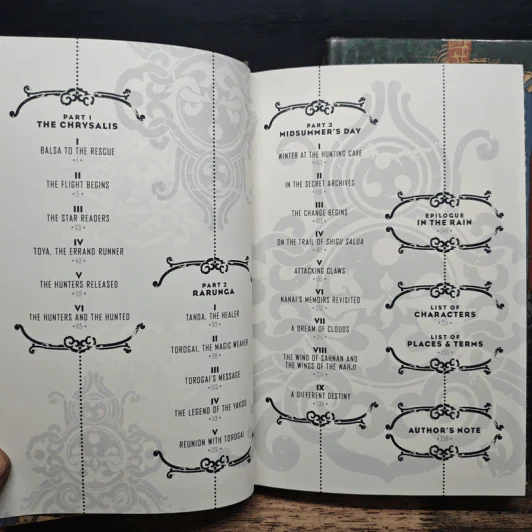 PART 1
THE CHRYSALIS
I
BALSA TO THE RESCUE
II
THE FLIGHT BEGINS
III
THE STAR READERS
IV
TOYA, THE ERRAND RUNNER
V
THE HUNTERS RELEASED
VI
THE HUNTERS AND THE HUNTED
PART 2
RARUNGA
I
TANDA, THE HEALER
II
TOROGAI, THE MAGIC WEAVER
III
TOROGAI'S MESSAGE
IV
THE LEGEND OF THE YAKOO
V
REUNION WITH TOROGAI
PART 3
MIDSUMMER'S DAY
I
WINTER AT THE HUNTING CAVE
II
IN THE SECRET ARCHIVES
III
THE CHANGE BEGINS
IV
ON THE TRAIL OF SHIGU SALUA
V
ATTACKING CLAWS
VI
NANAI'S MEMOIRS REVISITED
VII
A DREAM OF CLOUDS
VIII
THE WIND OF SAHNAN AND
THE WINGS OF THE NAHJI
IX
A DIFFERENT DESTINY
EPILOGUE
IN THE RAIN
LIST OF
CHARACTERS
LIST OF
PLACES & TERMS
AUTHOR'S NOTE